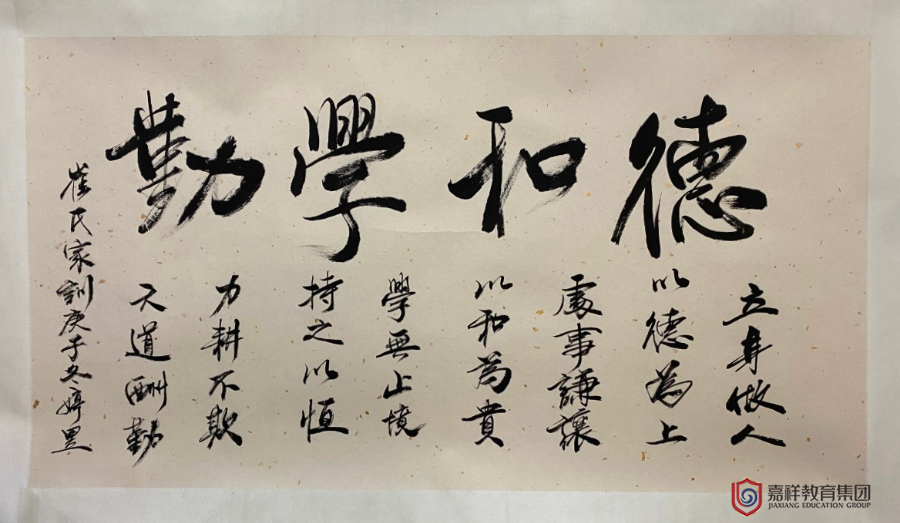 德和學勤
立身做人
以德為上
處事謙讓
以和為貴
學無止境
持之以恒
力耕不欺
天道酬勤
崔氏家訓庚子冬婷墨
嘉祥教育集团
JIAXIANG EDUCATION GROUP